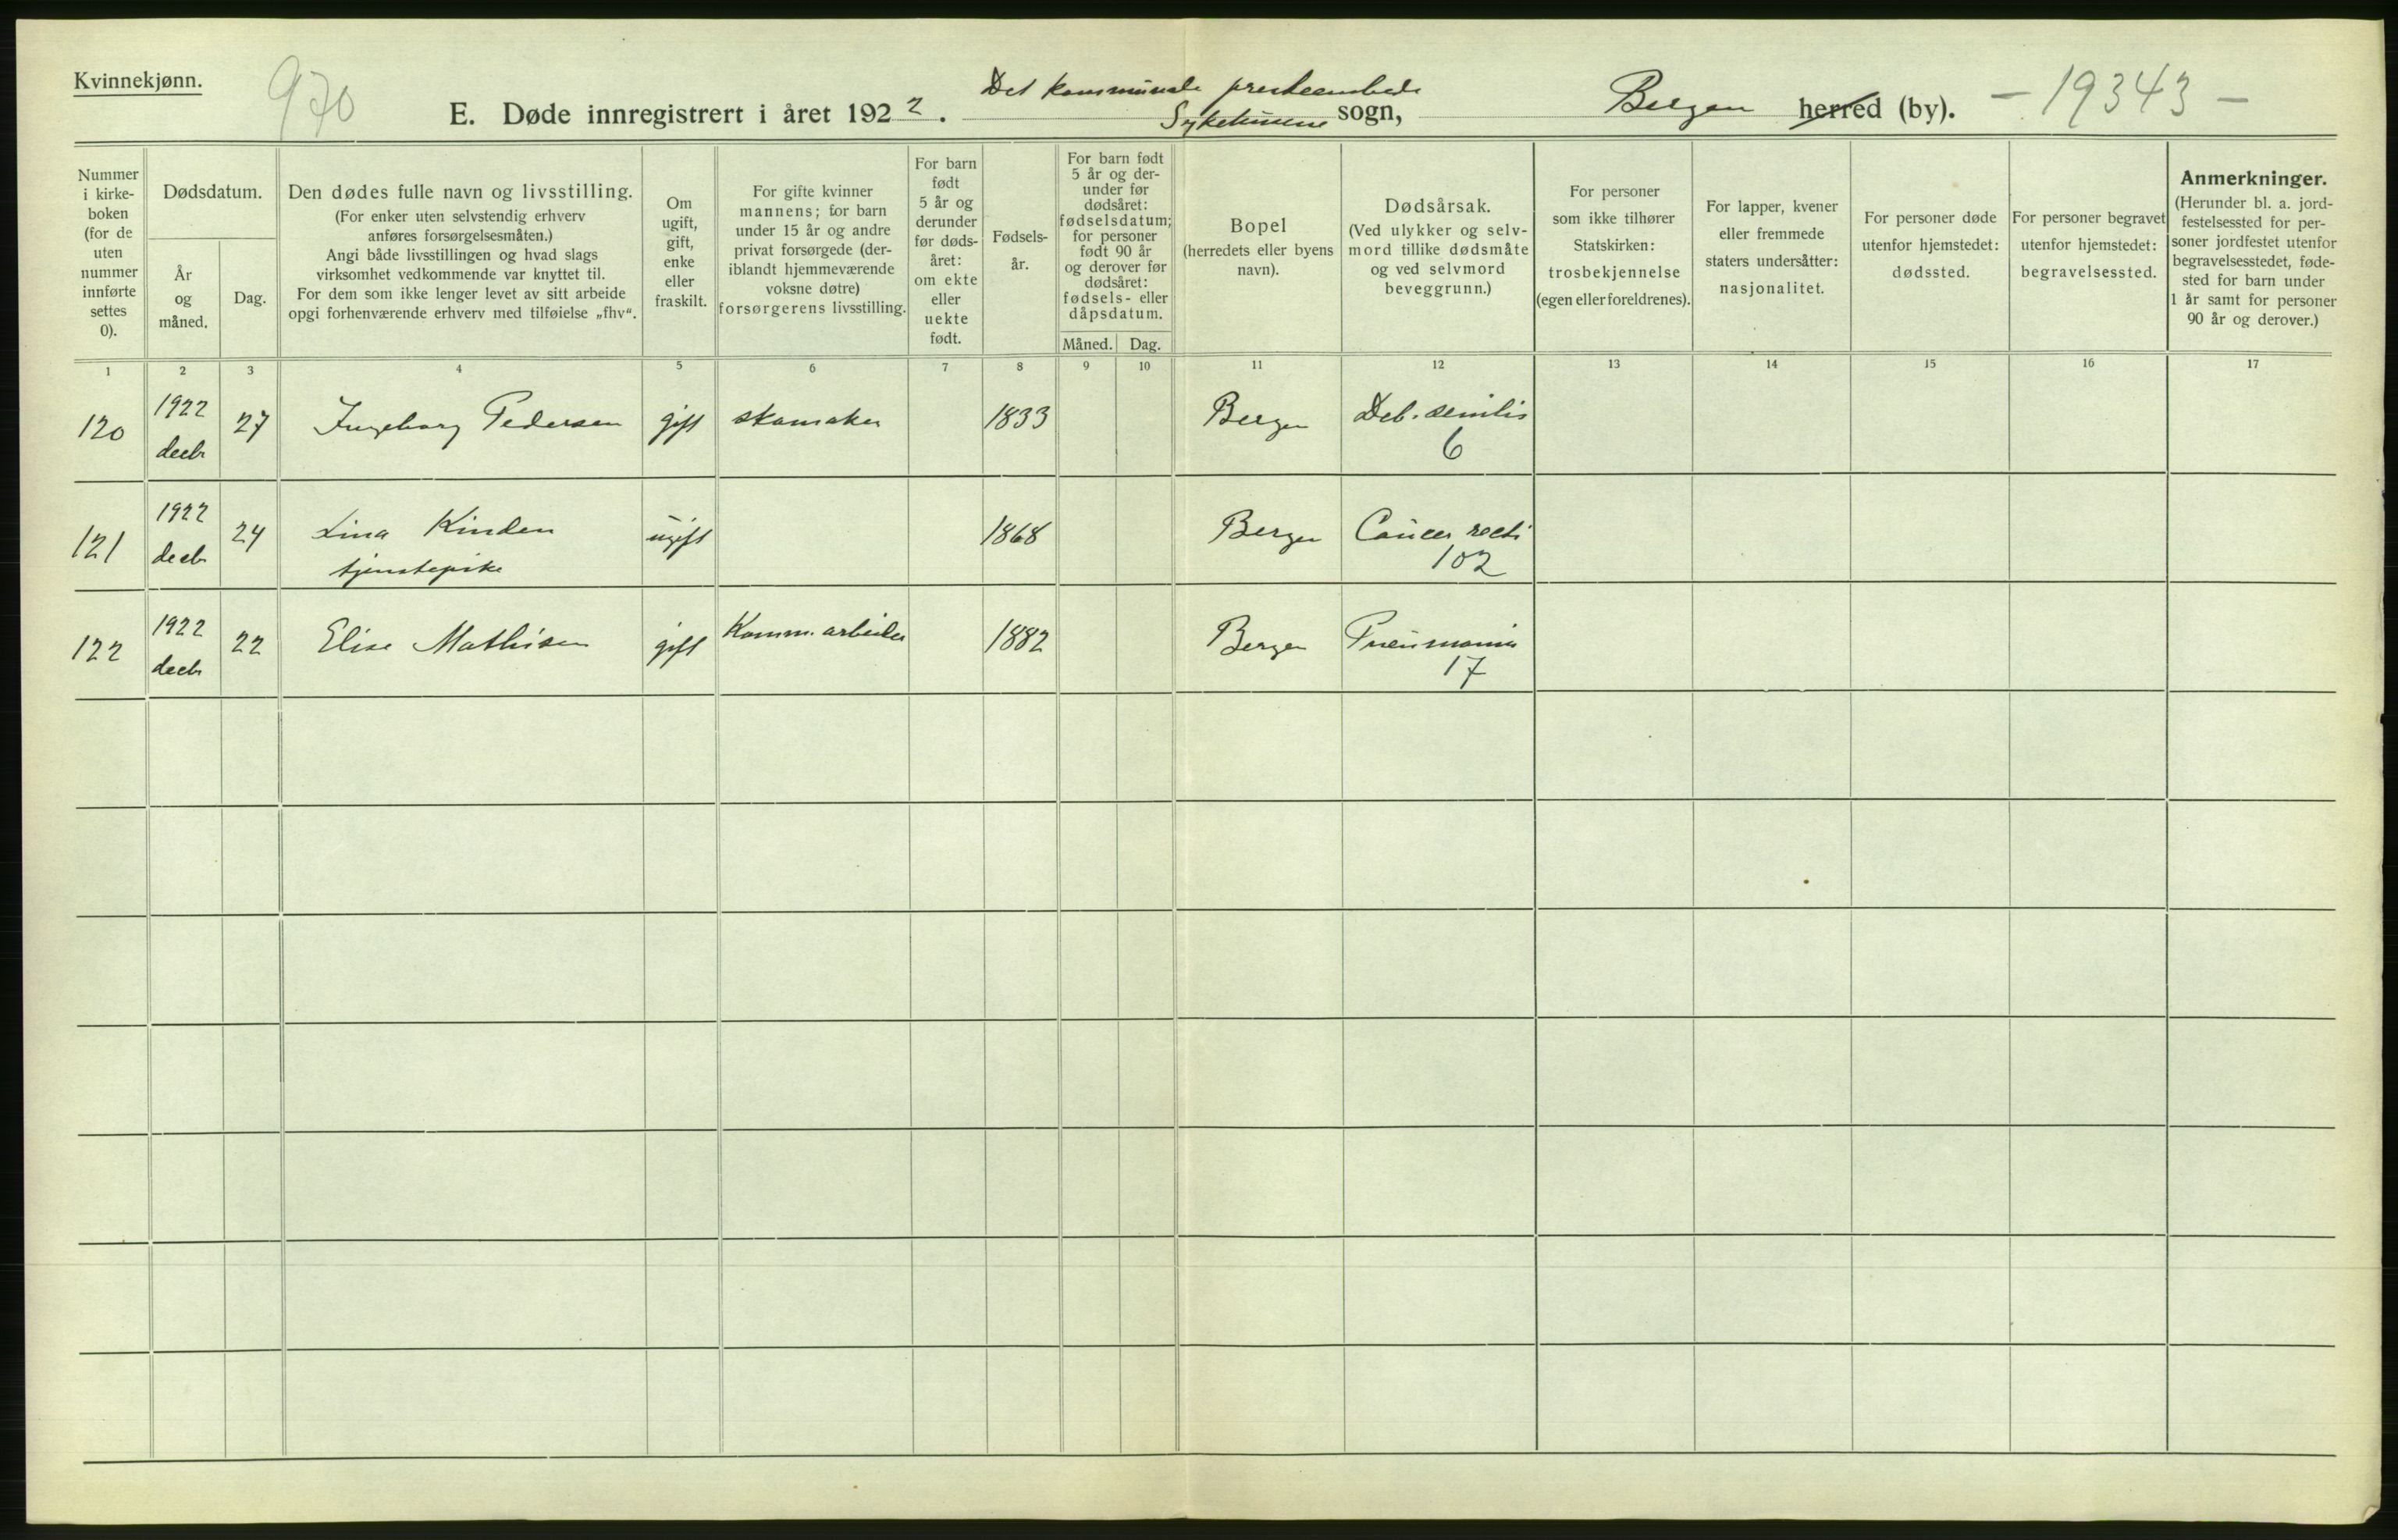 Kvinnekjønn.
970
E. Døde innregistrert i året 1922.
Det kommunale presteembede
Sykehusene sogn,
Bergen herred (by).
- 19343 -
Nummer
i kirke-
boken
(for de
uten
nummer
innførte
settes
0).
Dødsdatum.
År
og
måned.
Dag.
Den dødes fulle navn og livsstilling.
(For enker uten selvstendig erhverv
anføres forsørgelsesmåten.)
Angi både livsstillingen og hvad slags
virksomhet vedkommende var knyttet til.
For dem som ikke lenger levet av sitt arbeide
opgi forhenværende erhverv med tilføielse „fhv“.
Om
ugift,
gift,
enke
eller
fraskilt.
For gifte kvinner
mannens; for barn
under 15 år og andre
privat forsørgede (der-
iblandt hjemmeværende
voksne døtre)
forsørgerens livsstilling.
For barn
født
5 år og
derunder
før døds-
året:
om ekte
eller
uekte
født.
Fødsels-
år.
For barn født
5 år og der-
under før
dødsåret:
fødselsdatum;
for personer
født 90 år
og derover før
dødsåret:
fødsels- eller
dåpsdatum.
Måned.
Dag.
Bopel
(herredets eller byens
navn).
Dødsårsak.
(Ved ulykker og selv-
mord tillike dødsmåte
og ved selvmord
beveggrunn.)
For personer
som ikke tilhører
Statskirken:
trosbekjennelse
(egen eller foreldrenes).
For lapper, kvener
eller fremmede
staters undersåtter:
nasjonalitet.
For personer døde
utenfor hjemstedet:
dødssted.
For personer begravet
utenfor hjemstedet:
begravelsessted.
Anmerkninger.
(Herunder bl. a. jord-
festelsessted for per-
soner jordfestet utenfor
begravelsesstedet, føde-
sted for barn under
1 år samt for personer
90 år og derover.)
1 2 3 4 5 6 7 8 9 10 11 12 13 14 15 16 17
120 1922 27 Ingeborg Pedersen gift skomaker 1833 Bergen Deb. senilis
decbr 6
121 1922 24 Lina Kinden ugift 1868 Bergen Cancer recti
decbr tjenstepike 102
122 1922 22 Elise Mathisen gift Komm. arbeider 1882 Bergen Pneumonia
decbr 17